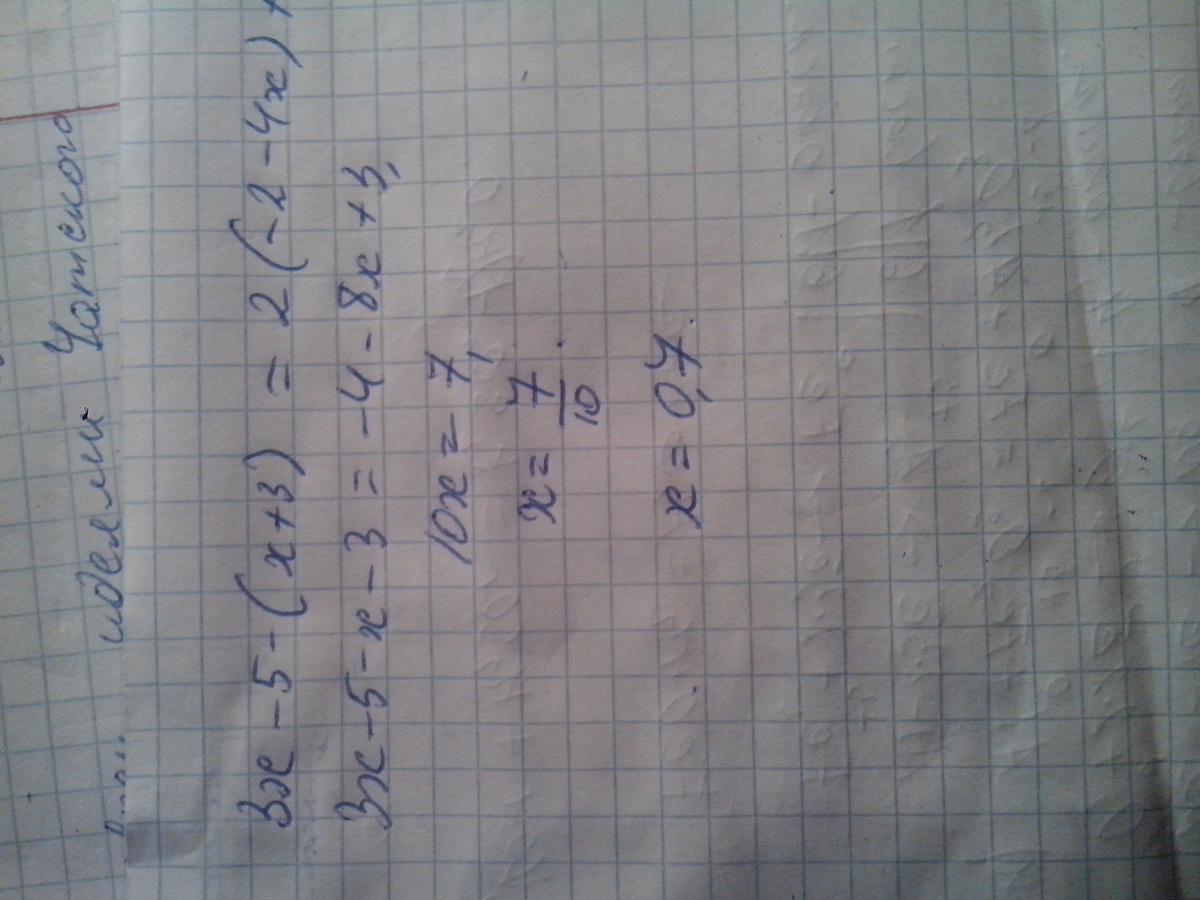 идеями Чатского
3x - 5 - (x + 3) = 2 (-2 - 4x) +
3x - 5 - x - 3 = -4 - 8x + 3,
10x = 7,
x = 7/10.
x = 0,7.